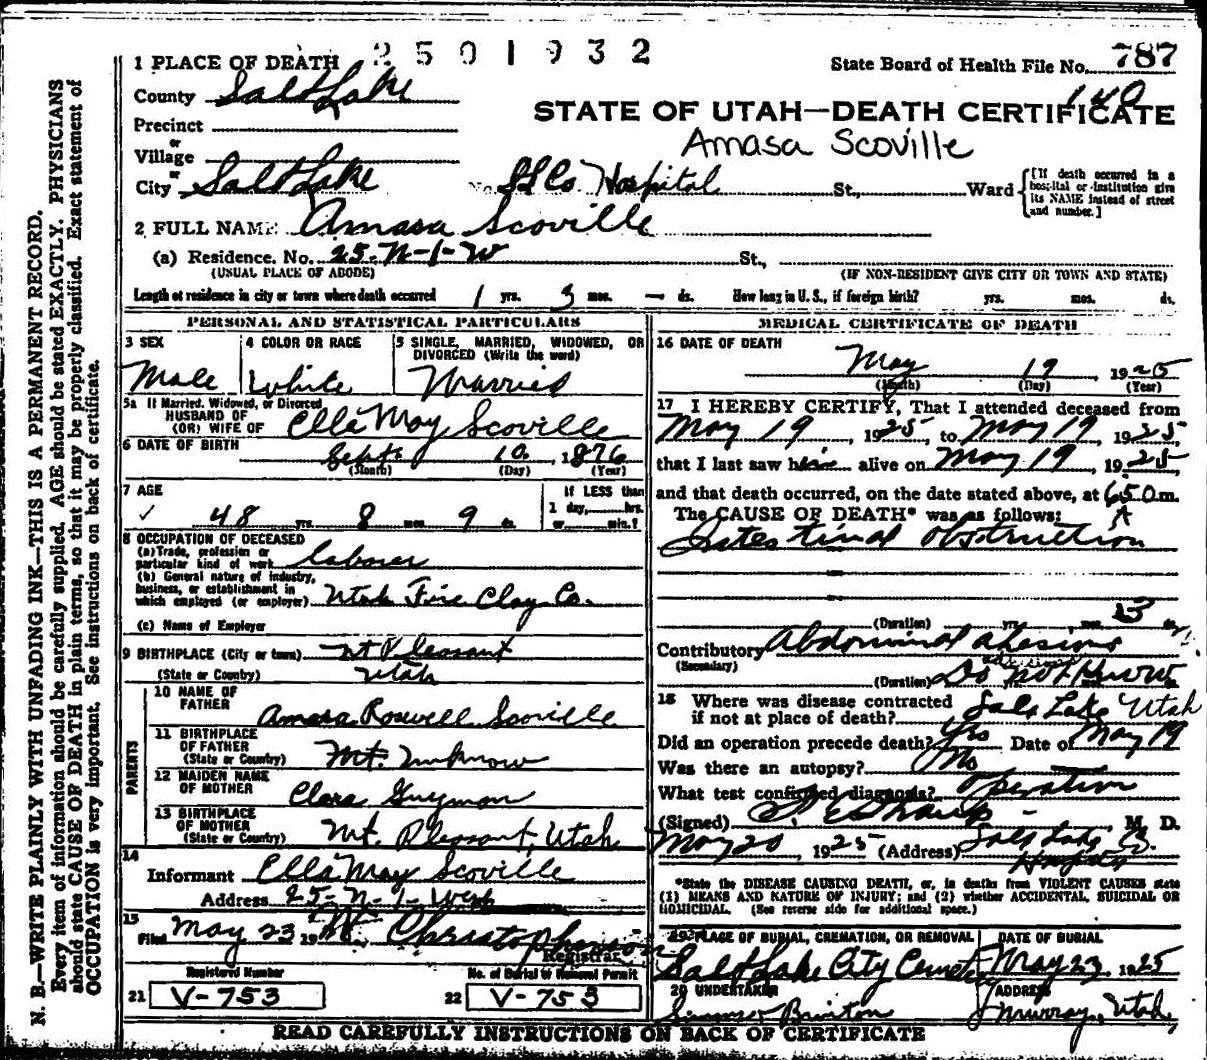 2501932
1 PLACE OF DEATH
State Board of Health File No. 787
140
County Salt Lake
STATE OF UTAH—DEATH CERTIFICATE
Precinct
Amasa Scoville
or
Village
or
City Salt Lake No. SLCo Hospital St., Ward
[If death occurred in a hospital or institution give its NAME instead of street and number.]
2 FULL NAME Amasa Scoville
(a) Residence. No. 25-N-1-W St.,
(USUAL PLACE OF ABODE) (IF NON-RESIDENT GIVE CITY OR TOWN AND STATE)
Length of residence in city or town where death occurred 1 yrs. 3 mos. — ds. How long in U. S., if foreign birth? yrs. mos. ds.
PERSONAL AND STATISTICAL PARTICULARS
3 SEX
Male
4 COLOR OR RACE
White
5 SINGLE, MARRIED, WIDOWED, OR
DIVORCED (Write the word)
Married
5a If Married, Widowed, or Divorced
HUSBAND OF
(OR) WIFE OF Ella May Scoville
6 DATE OF BIRTH Sept 10, 1876
(Month) (Day) (Year)
7 AGE
✓ 48 yrs. 8 mos. 9 ds.
If LESS than
1 day, hrs.
or min.?
8 OCCUPATION OF DECEASED
(a) Trade, profession or
particular kind of work laborer
(b) General nature of industry,
business, or establishment in
which employed (or employer) Utah Fire Clay Co.
(c) Name of Employer
9 BIRTHPLACE (City or town) Mt Pleasant
(State or Country) Utah
PARENTS
10 NAME OF
FATHER Amasa Roswell Scoville
11 BIRTHPLACE
OF FATHER
(State or Country) Mt. Unknow
12 MAIDEN NAME
OF MOTHER Clara Guymon
13 BIRTHPLACE
OF MOTHER
(State or Country) Mt. Pleasant, Utah
14
Informant Ella May Scoville
Address 25-N-1-West
15
Filed May 23 19 Christopherson
Registrar
Registered Number No. of Burial or Removal Permit
21 V-753 22 V-753
MEDICAL CERTIFICATE OF DEATH
16 DATE OF DEATH
May 19 1925
(Month) (Day) (Year)
17 I HEREBY CERTIFY, That I attended deceased from
May 19, 1925, to May 19, 1925,
that I last saw him alive on May 19, 1925,
and that death occurred, on the date stated above, at 650 m.
A
The CAUSE OF DEATH* was as follows:
Intestinal obstruction
(Duration) yrs. mos. 3 ds.
Contributory Abdominal ahesions
(Secondary) adhesions
(Duration) Do not Know
18 Where was disease contracted
if not at place of death? Salt Lake Utah
Did an operation precede death? Yes Date of May 19
Was there an autopsy? No
What test confirmed diagnosis? Operation
(Signed) M. D.
May 20, 1925 (Address) Salt Lake Co.
Hospital
*State the DISEASE CAUSING DEATH, or, in deaths from VIOLENT CAUSES state
(1) MEANS AND NATURE OF INJURY; and (2) whether ACCIDENTAL, SUICIDAL OR
HOMICIDAL. (See reverse side for additional space.)
19 PLACE OF BURIAL, CREMATION, OR REMOVAL
Salt Lake City Cemetery
DATE OF BURIAL
May 23, 1925
20 UNDERTAKER
ADDRESS
Murray, Utah,
READ CAREFULLY INSTRUCTIONS ON BACK OF CERTIFICATE
N. B.—WRITE PLAINLY WITH UNFADING INK—THIS IS A PERMANENT RECORD.
Every item of information should be carefully supplied. AGE should be stated EXACTLY. PHYSICIANS
should state CAUSE OF DEATH in plain terms, so that it may be properly classified. Exact statement of
OCCUPATION is very important. See instructions on back of certificate.